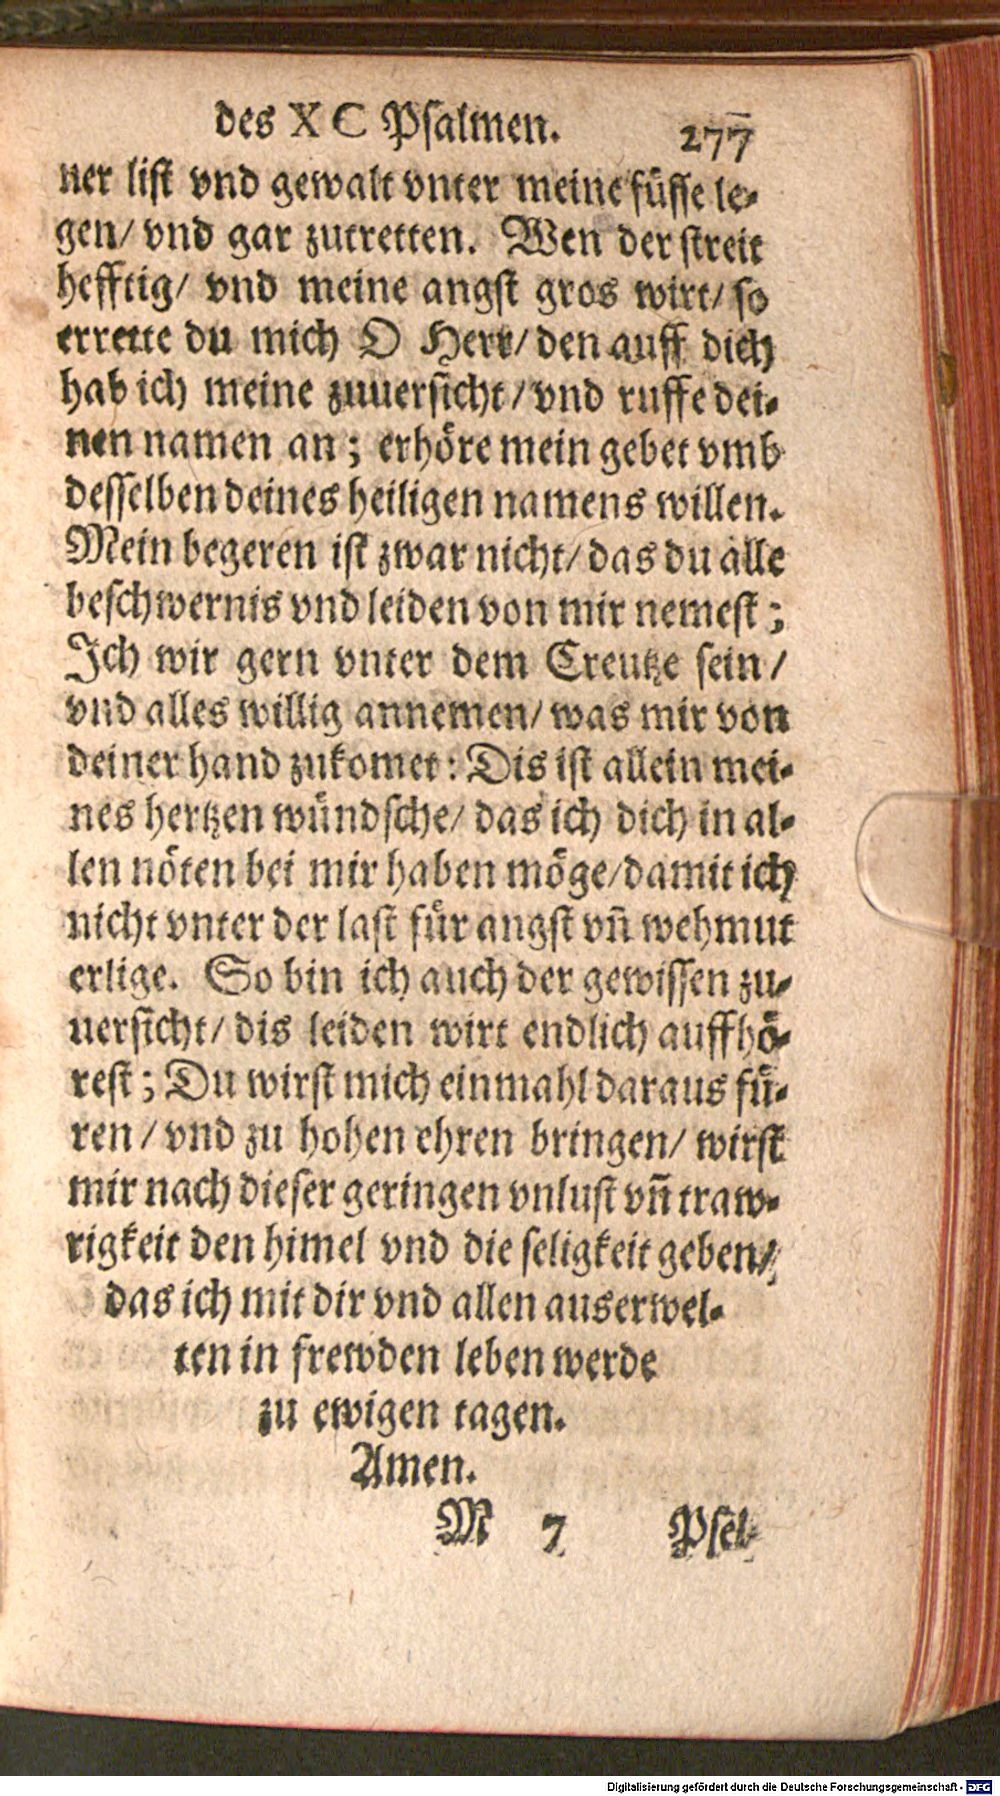 des X C Psalmen. 277
ner list vnd gewalt vnter meine füsse le-
gen/ vnd gar zutretten. Wen der streit
hefftig/ vnd meine angst gros wirt/ so
errette du mich O Herr/ den auff dich
hab ich meine zuuersicht/ vnd ruffe dei-
nen namen an; erhöre mein gebet vmb
desselben deines heiligen namens willen.
Mein begeren ist zwar nicht/ das du alle
beschwernis vnd leiden von mir nemest;
Ich wir gern vnter dem Creutze sein/
vnd alles willig annemen/ was mir von
deiner hand zukomet: Dis ist allein mei-
nes hertzen wündsche/ das ich dich in al-
len nöten bei mir haben möge/ damit ich
nicht vnter der last für angst vn̄ wehmut
erlige. So bin ich auch der gewissen zu-
uersicht/ dis leiden wirt endlich auffhö-
rest; Du wirst mich einmahl daraus fü-
ren/ vnd zu hohen ehren bringen/ wirst
mir nach dieser geringen vnlust vn̄ traw-
rigkeit den himel vnd die seligkeit geben/
das ich mit dir vnd allen auserwel-
ten in frewden leben werde
zu ewigen tagen.
Amen.
M 7 Psel-
Digitalisierung gefördert durch die Deutsche Forschungsgemeinschaft - DFG